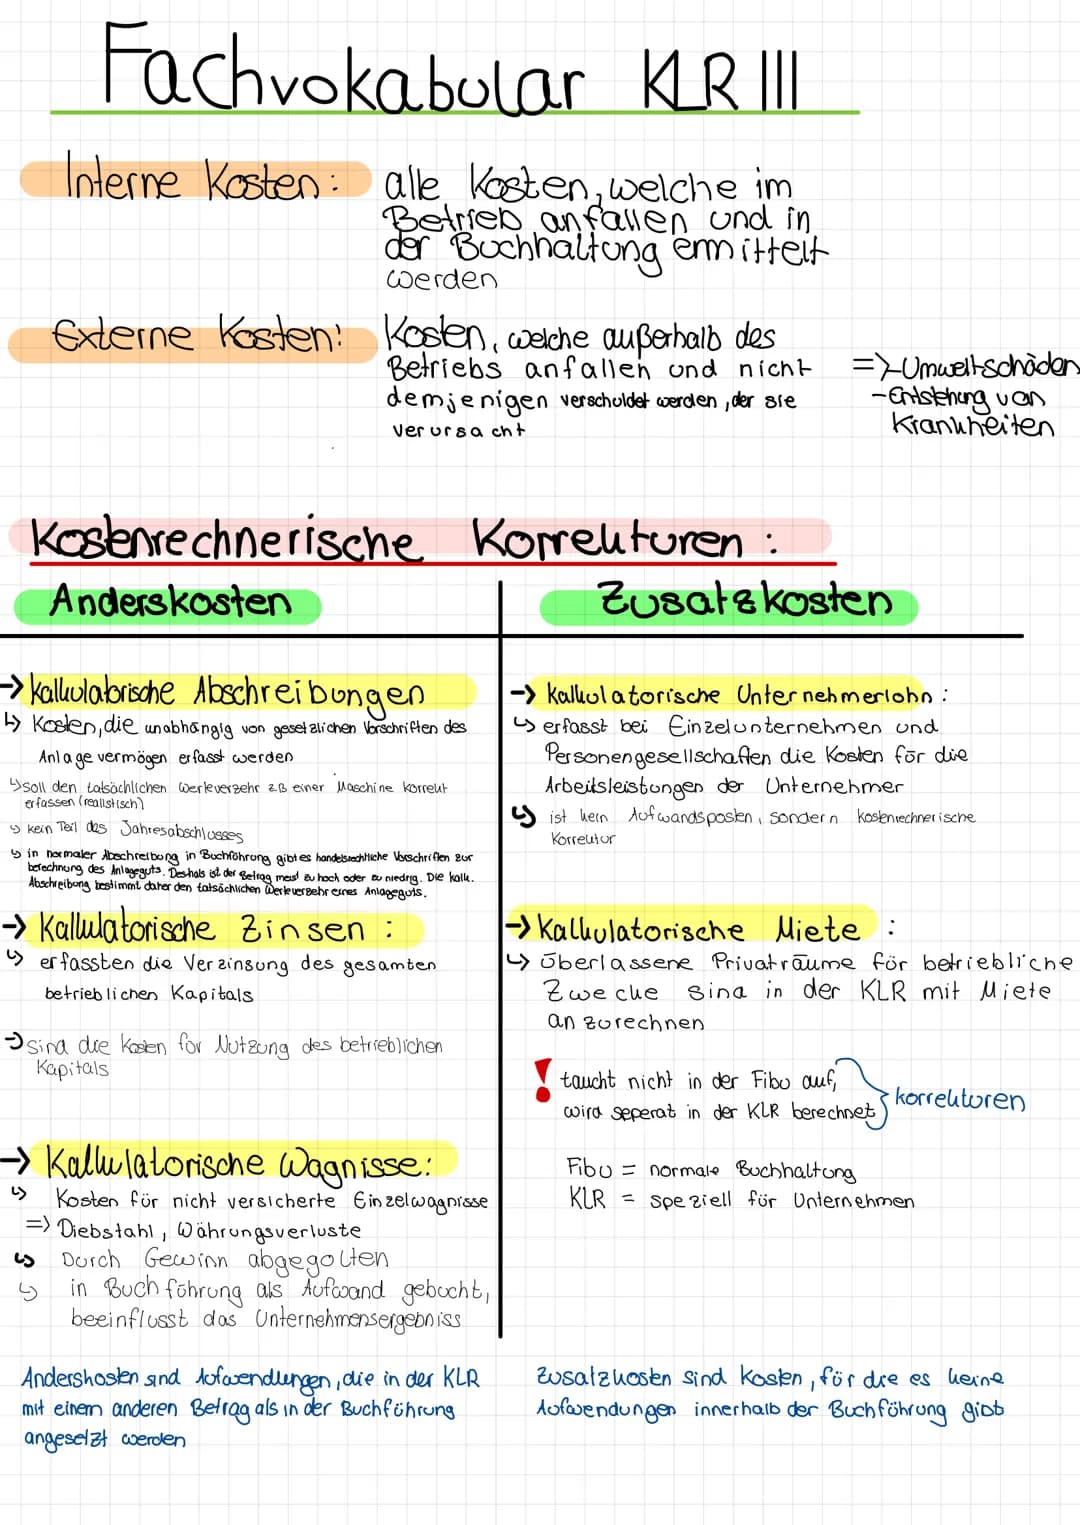 Fachvokabular KLR III
Interne Kosten: alle Kosten, welche im
Betrieb anfallen und in
der Buchhaltung ermittelt
werden
Externe Kosten: Kosten, welche außerhalb des
Betriebs anfallen und nicht
demjenigen verschuldet werden, der sie
verursacht
=> - Umweltschäden
- Entstehung von
Krankheiten
Kostenrechnerische Korrekturen:
Anderskosten
→ kalkulatorische Abschreibungen
↳ Kosten, die unabhängig von gesetzlichen Vorschriften des
Anlagevermögen erfasst werden
↳ soll den tatsächlichen Werteverzehr z.B einer Maschine korrekt
erfassen (realistisch)
↳ kein Teil des Jahresabschlusses
↳ in normaler Abschreibung in Buchführung gibt es handelsrechtliche Vorschriften zur
berechnung des Anlageguts. Deshalb ist der Betrag meist zu hoch oder zu niedrig. Die kalk.
Abschreibung bestimmt daher den tatsächlichen Werteverzehr eines Anlageguts.
→ Kalkulatorische Zinsen:
↳ erfassten die Verzinsung des gesamten
betrieblichen Kapitals
→ sind die Kosten for Nutzung des betrieblichen
Kapitals
→ Kalkulatorische Wagnisse:
↳ Kosten für nicht versicherte Einzelwagnisse
=> Diebstahl, Währungsverluste
↳ Durch Gewinn abgegolten
↳ in Buchführung als Aufwand gebucht,
beeinflusst das Unternehmensergebniss
Anderskosten sind Aufwendungen, die in der KLR
mit einem anderen Betrag als in der Buchführung
angesetzt werden
Zusatzkosten
→ Kalkulatorische Unternehmerlohn:
↳ erfasst bei Einzelunternehmen und
Personengesellschaften die Kosten für die
Arbeitsleistungen der Unternehmer
↳ ist kein Aufwandsposten, sondern kostenrechnerische
Korrektur
→ Kalkulatorische Miete:
↳ überlassene Privaträume für betriebliche
Zwecke sind in der KLR mit Miete
anzurechnen
! taucht nicht in der Fibu auf,
wird seperat in der KLR berechnet
korrekturen
Fibu = normale Buchhaltung
KLR = speziell für Unternehmen
Zusatzkosten sind Kosten, für die es keine
Aufwendungen innerhalb der Buchführung gibt